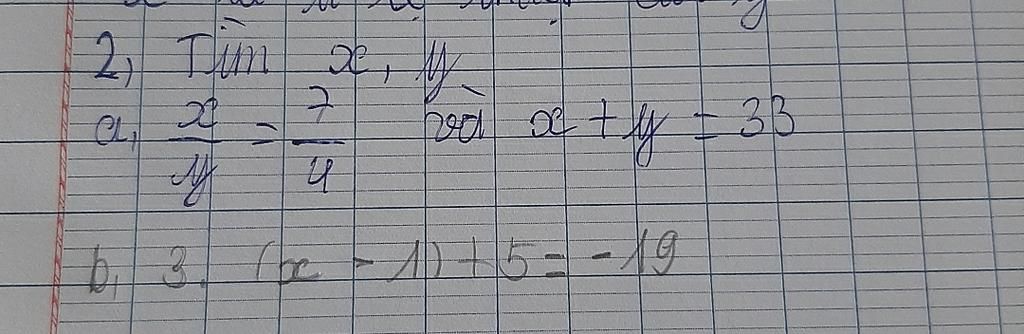 2, Tìm x, y
a, x/y = 7/4 và x + y = 33
b, 3. (x - 1) + 5 = -19